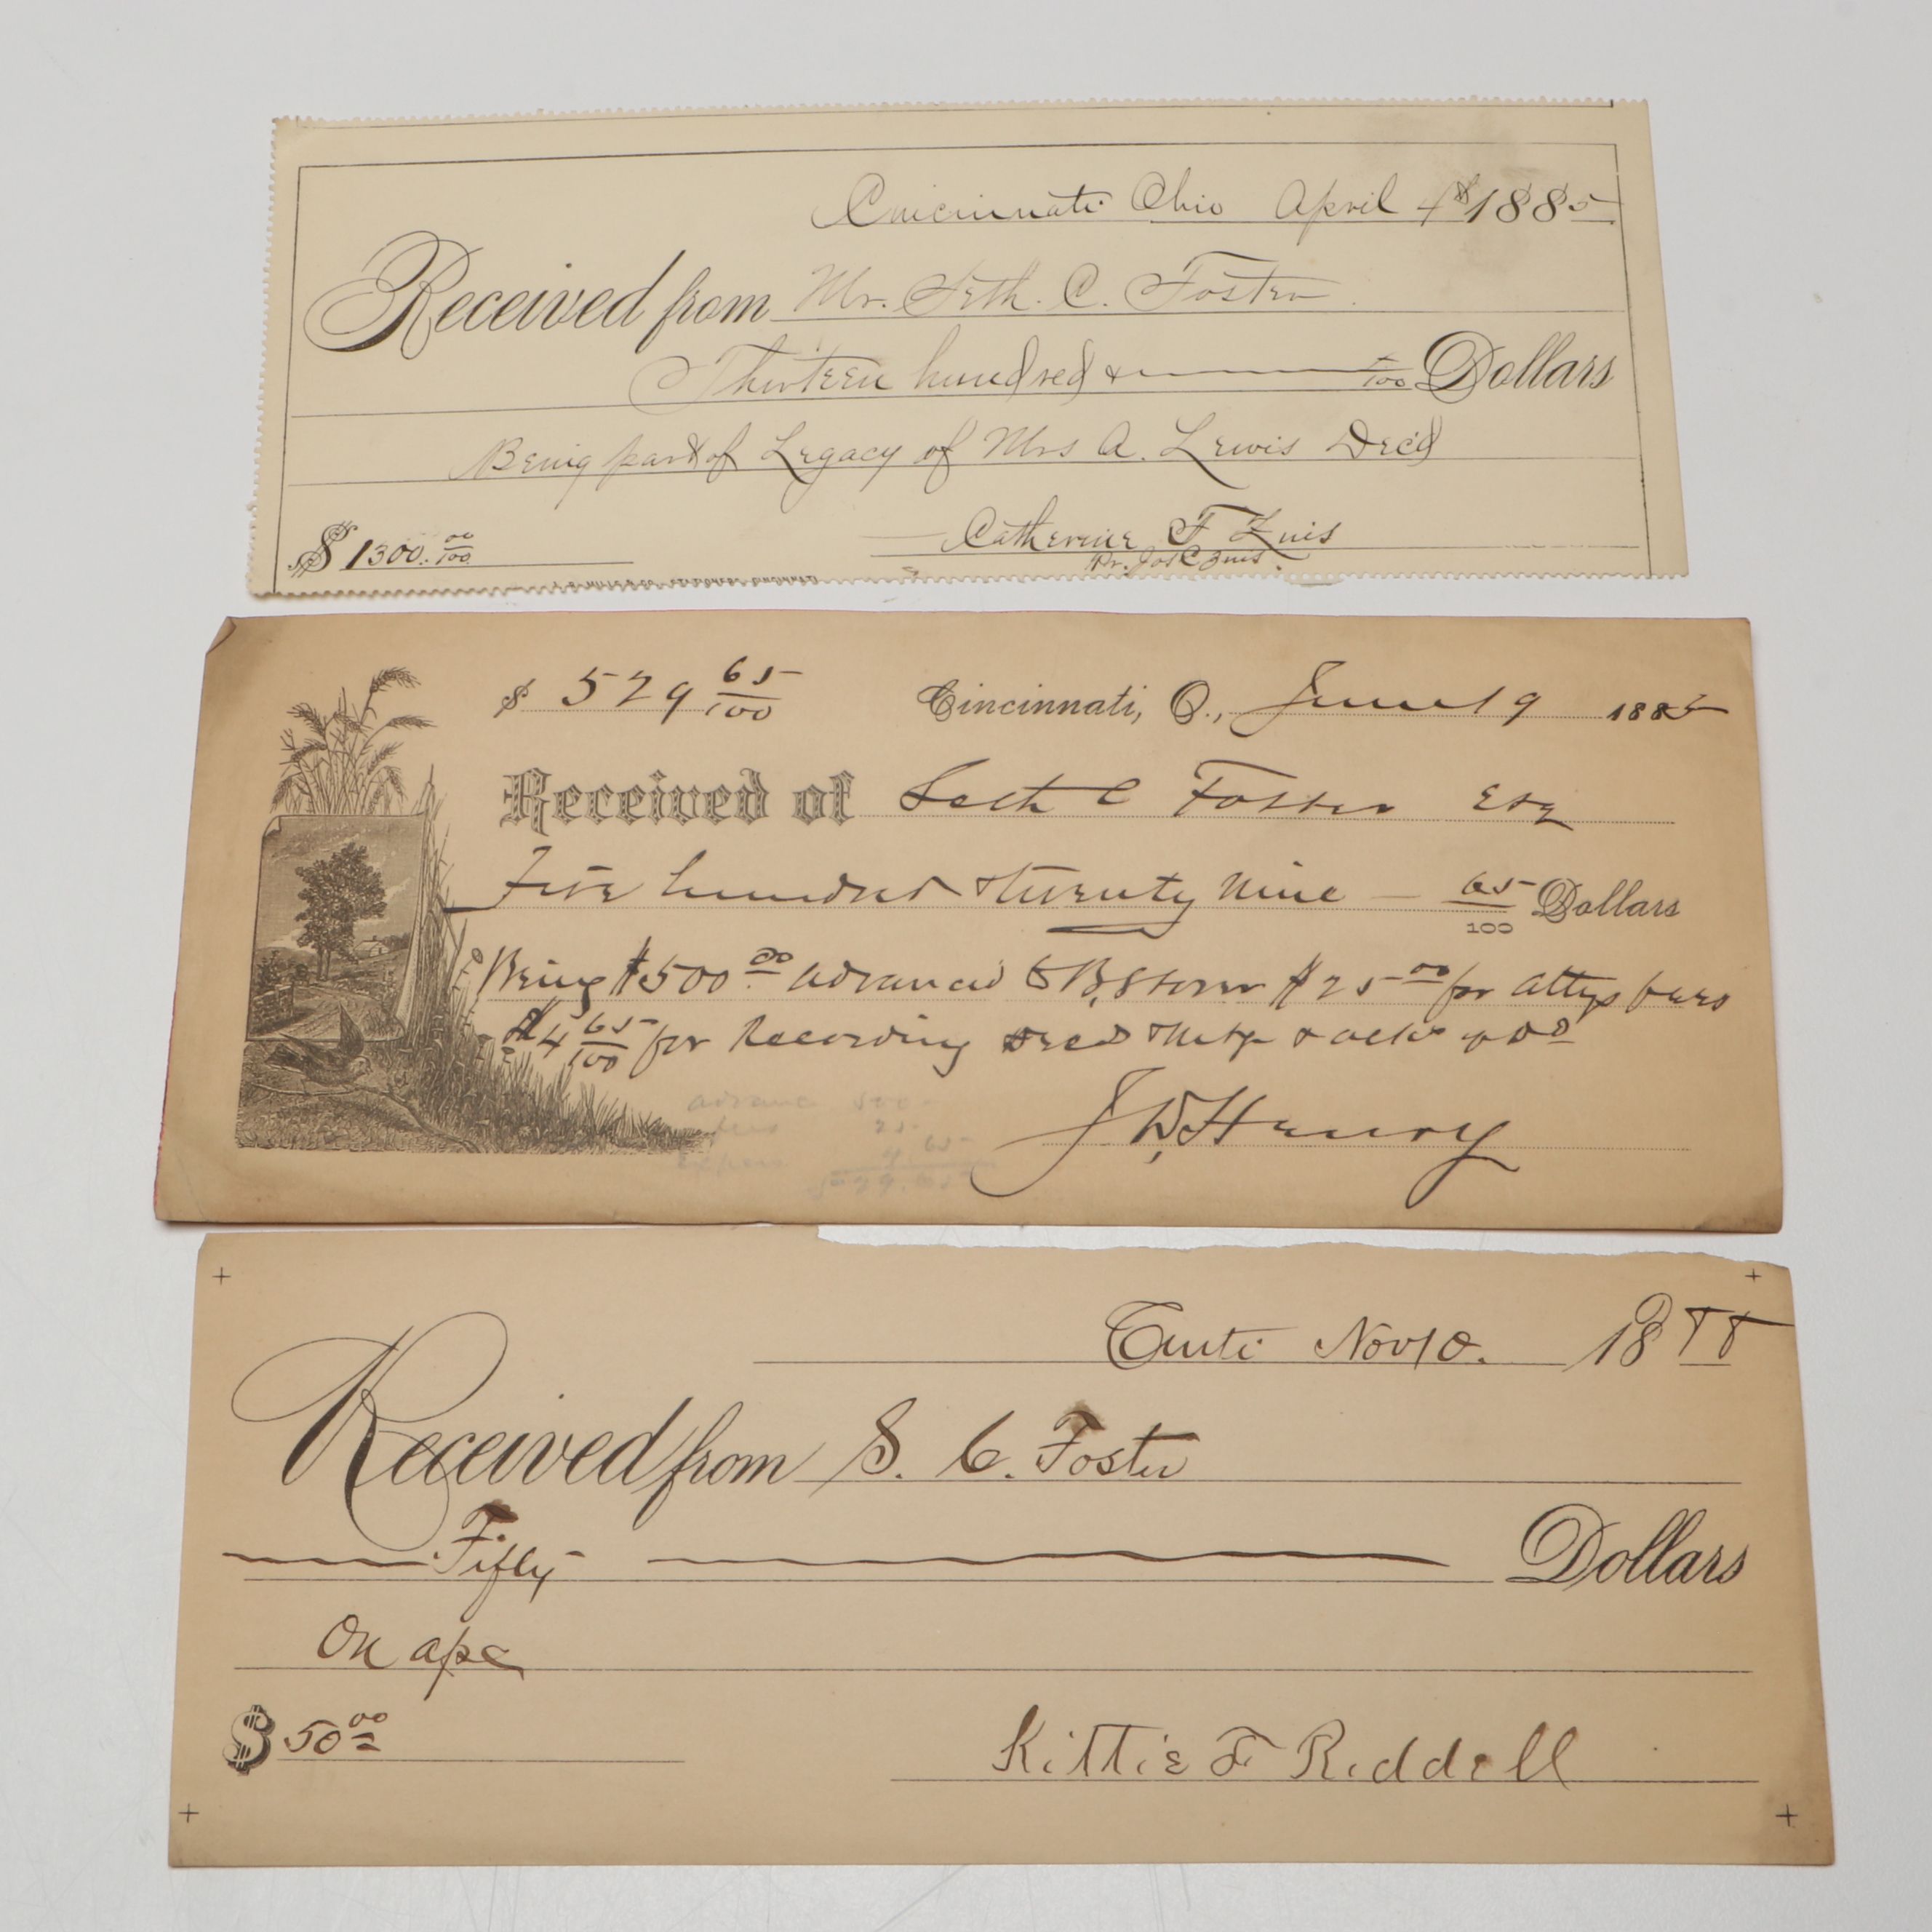 Cincinnati Ohio April 4th 1885
Received from Mr. Seth. C. Foster.
Thirteen hundred & /100 Dollars
Being part of Legacy of Mrs A. Lewis Decd
Catherine F
$ 1300.00/100
Pr. Jos C
CINCINNATI
$ 529 65/100 Cincinnati, O., June 19 1885
Received of Seth C Foster Esq
Five hundred & twenty nine — 65/100 Dollars
Being $500.00 advanced to B, Storer $25.00 for attys fees
$4 65/100 for Recording deed
J W Henry
advance 500
fees 25.
4 65
529.65
Cinti Nov 10. 1888
Received from S. C. Foster
Fifty Dollars
On a/c
$ 50.00
Kittie F Riddell